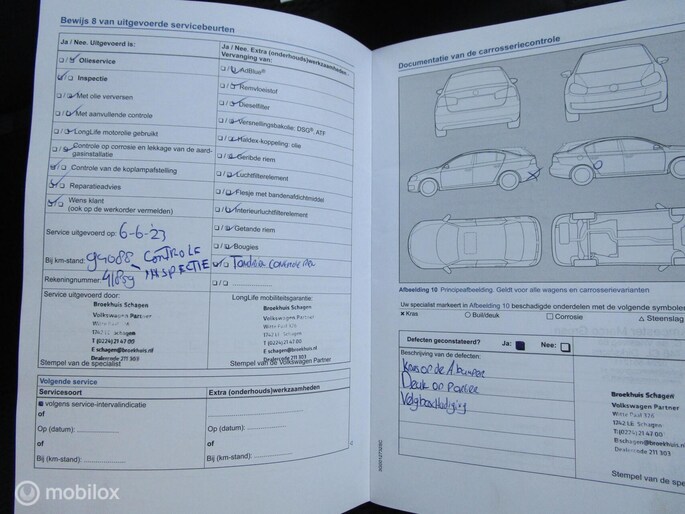 Bewijs 8 van uitgevoerde servicebeurten
Ja / Nee. Uitgevoerd is:
Olieservice
Inspectie
Met olie verversen
Met aanvullende controle
LongLife motorolie gebruikt
Controle op corrosie en lekkage van de aard-
gasinstallatie
Controle van de koplampafstelling
Reparatieadvies
Wens klant
(ook op de werkorder vermelden)
Service uitgevoerd op: 6-6-23
Bij km-stand: 94088 CONTROLE
INSPECTIE
Rekeningnummer: 41859
Service uitgevoerd door:
Broekhuis Schagen
Volkswagen Partner
Witte Paal 326
1742 LE Schagen
T (0224) 21 47 00
E schagen@broekhuis.nl
Dealercode 211 303
Stempel van de specialist
Ja / Nee. Extra (onderhouds)werkzaamheden
Vervanging van:
AdBlue®
Remvloeistof
Dieselfilter
Versnellingsbakolie: DSG®, ATF
Haldex-koppeling: olie
Geribde riem
Luchtfilterelement
Flesje met bandenafdichtmiddel
Interieurluchtfilterelement
Getande riem
Bougies
LongLife mobiliteitsgarantie:
Broekhuis Schagen
Volkswagen Partner
Witte Paal 326
1742 LE Schagen
T (0224) 21 47 00
E schagen@broekhuis.nl
Dealercode 211 303
Stempel van de Volkswagen Partner
Volgende service
Servicesoort
volgens service-intervalindicatie
of
Op (datum):
of
Bij (km-stand):
Extra (onderhouds)werkzaamheden
Op (datum):
of
Bij (km-stand):
Documentatie van de carrosseriecontrole
Afbeelding 10 Principeafbeelding. Geldt voor alle wagens en carrosserievarianten
Uw specialist markeert in Afbeelding 10 beschadigde onderdelen met de volgende symbolen
× Kras ○ Buil/deuk □ Corrosie △ Steenslag
Defecten geconstateerd? Ja: Nee:
Beschrijving van de defecten:
Deuk op Portier
Velgbeschadiging
Broekhuis Schagen
Volkswagen Partner
Witte Paal 326
1742 LE Schagen
T (0224) 21 47 00
E schagen@broekhuis.nl
Dealercode 211 303
Stempel van de specialist
mobilox